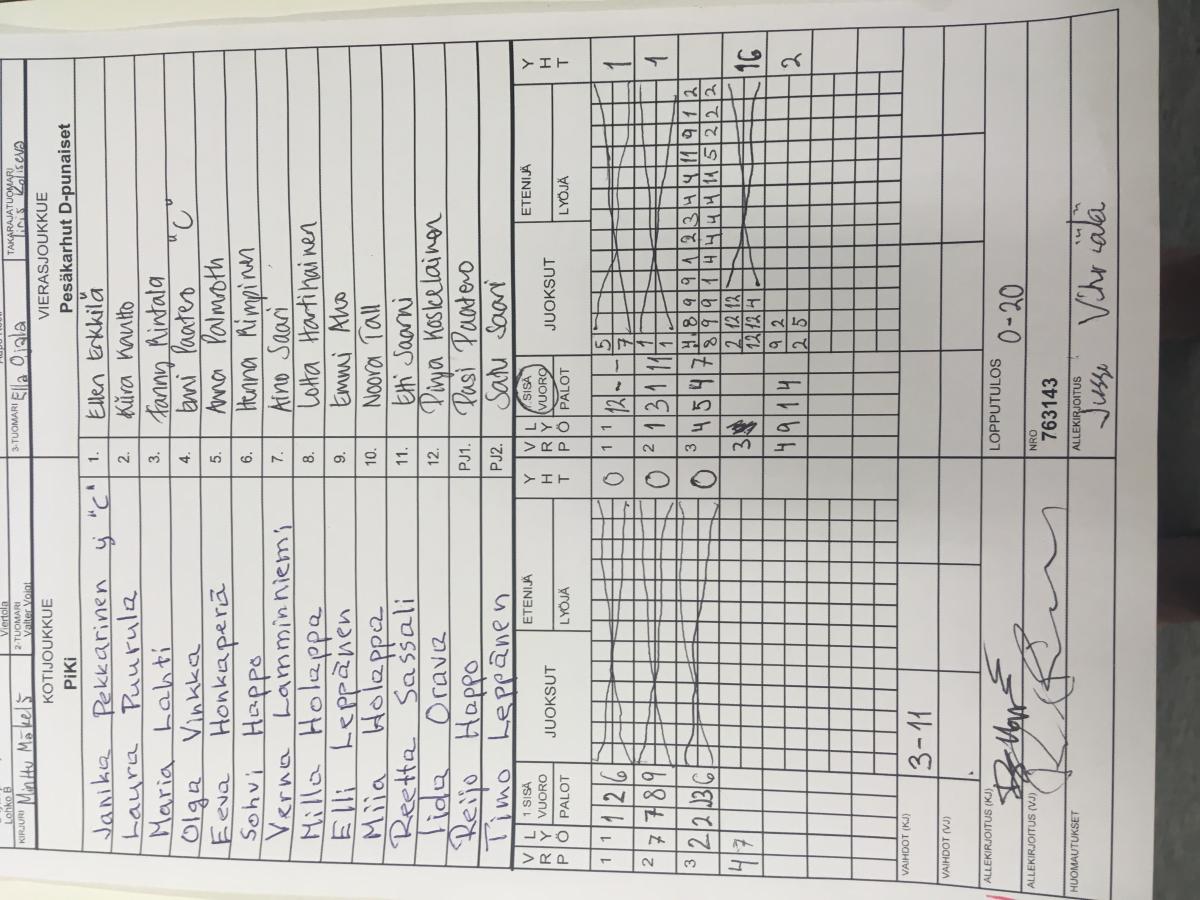 Lohko B
Viertola
KIRJURI Minttu Mäkelä
2-TUOMARI Valter Voigt
3-TUOMARI Ella Ojala
TAKARAJATUOMARI
KOTIJOUKKUE
PiKi
VIERASJOUKKUE
Pesäkarhut D-punaiset
Janika Pekkarinen y "C" 1. Ellen Erkkilä
Laura Puurula 2. Kiira Kautto
Maria Lahti 3. Fanny Rintala
Olga Vinkka 4. Enni Paatero "C"
Eeva Honkaperä 5. Anna Palmroth
Sohvi Happo 6. Henna Rimpinen
Verna Lamminniemi 7. Aino Saari
Milla Holappa 8. Lotta Hartihainen
Elli Leppänen 9. Emmi Aho
Miia Holappa 10. Noora Tall
Reetta Sassali 11. Etti Saarni
Iida Orava 12. Pinja Koskelainen
Reijo Happo PJ1. Pasi Paatero
Timo Leppänen PJ2. Satu Saari
VRP LYÖ 1 SISÄVUORO PALOT JUOKSUT ETENIJÄ LYÖJÄ YHT
1 1 1 2 6 0
2 7 7 8 9 0
3 2 2 13 6 0
4 7
VRP LYÖ 1.SISÄ VUORO PALOT JUOKSUT ETENIJÄ LYÖJÄ YHT
1 1 12 - - 5 1
7
2 1 3 1 11 1 1
1
3 4 5 4 7 8 9 9 1 2 3 4 4 11 9 1 2
8 9 9 1 4 4 4 4 11 5 2 2 2
3 2 12 12 16
12 12 4
4 9 1 4 9 2 2
2 5
VAIHDOT (KJ) 3-11
VAIHDOT (VJ)
ALLEKIRJOITUS (KJ)
LOPPUTULOS 0-20
ALLEKIRJOITUS (VJ)
NRO 763143
HUOMAUTUKSET
ALLEKIRJOITUS Jussi Vihriälä